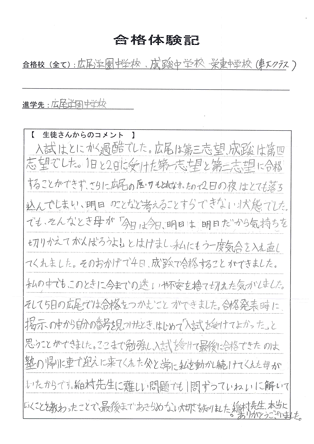 合格体験記
合格校（全て）：広尾学園中学校、成蹊中学校 栄東中学校（東大クラス）
進学先：広尾学園中学校
【 生徒さんからのコメント 】
入試はとにかく過酷でした。広尾は第三志望、成蹊は第四
志望でした。1日と2日に受けた第一志望と第二志望に合格
することができず、さらに広尾の 2日の夜はとても落ち
込んでしまい、明日のことなど考えることすらできない状態でした。
でも、そんなとき母が「今日は今日、明日は明日だから気持ちを
切りかえてがんばろうよ」とはげまし、私にもう一度気合を入れ直し
てくれました。そのおかげで4日、成蹊で合格することができました。
私の中でもこのときに今までの迷いや不安を捨て切れた気がしました。
そして5日の広尾では合格をつかむことができました。合格発表時に
掲示の中から自分の番号を見つけたとき、はじめて「入試を受けてよかった。」と
思うことができました。ここまで勉強し入試を終えて最後に合格できたのは
塾の帰りに車で迎えに来てくれた父と常に私を励まし続けてくれた母が
いたからです。稲村先生に難しい問題でも1問ずつていねいに解いて
いくことを教わったことで最後まであきらめない大切さを知りました。稲村先生、本当に
ありがとうございました。